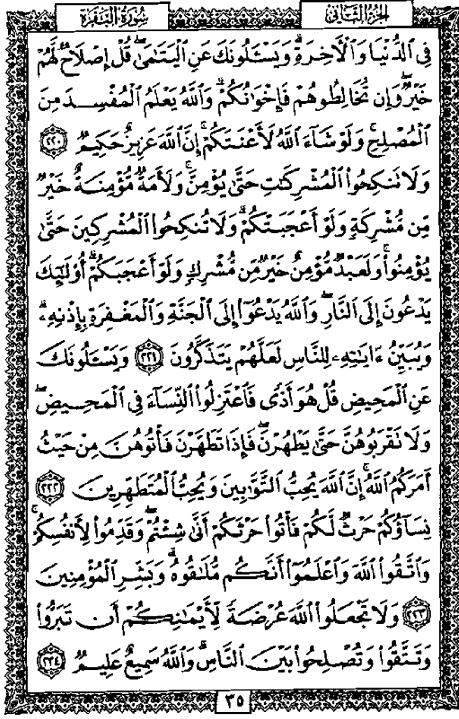 الجزء الثاني
سورة البقرة
فِي الدُّنْيَا وَالْآخِرَةِ ۗ وَيَسْـَٔلُونَكَ عَنِ الْيَتَـٰمَىٰ ۖ قُلْ إِصْلَاحٌ لَّهُمْ
خَيْرٌ ۖ وَإِن تُخَالِطُوهُمْ فَإِخْوَٰنُكُمْ ۚ وَاللَّهُ يَعْلَمُ الْمُفْسِدَ مِنَ
الْمُصْلِحِ ۚ وَلَوْ شَآءَ اللَّهُ لَأَعْنَتَكُمْ ۚ إِنَّ اللَّهَ عَزِيزٌ حَكِيمٌ ﴿٢٢٠﴾
وَلَا تَنكِحُوا۟ الْمُشْرِكَـٰتِ حَتَّىٰ يُؤْمِنَّ ۚ وَلَأَمَةٌ مُّؤْمِنَةٌ خَيْرٌ
مِّن مُّشْرِكَةٍ وَلَوْ أَعْجَبَتْكُمْ ۗ وَلَا تُنكِحُوا۟ الْمُشْرِكِينَ حَتَّىٰ
يُؤْمِنُوا۟ ۚ وَلَعَبْدٌ مُّؤْمِنٌ خَيْرٌ مِّن مُّشْرِكٍ وَلَوْ أَعْجَبَكُمْ ۗ أُو۟لَـٰٓئِكَ
يَدْعُونَ إِلَى النَّارِ ۖ وَاللَّهُ يَدْعُوٓا۟ إِلَى الْجَنَّةِ وَالْمَغْفِرَةِ بِإِذْنِهِۦ ۖ
وَيُبَيِّنُ ءَايَـٰتِهِۦ لِلنَّاسِ لَعَلَّهُمْ يَتَذَكَّرُونَ ﴿٢٢١﴾ وَيَسْـَٔلُونَكَ
عَنِ الْمَحِيضِ ۖ قُلْ هُوَ أَذًى فَاعْتَزِلُوا۟ النِّسَآءَ فِي الْمَحِيضِ ۖ
وَلَا تَقْرَبُوهُنَّ حَتَّىٰ يَطْهُرْنَ ۖ فَإِذَا تَطَهَّرْنَ فَأْتُوهُنَّ مِنْ حَيْثُ
أَمَرَكُمُ اللَّهُ ۚ إِنَّ اللَّهَ يُحِبُّ التَّوَّٰبِينَ وَيُحِبُّ الْمُتَطَهِّرِينَ ﴿٢٢٢﴾
نِسَآؤُكُمْ حَرْثٌ لَّكُمْ فَأْتُوا۟ حَرْثَكُمْ أَنَّىٰ شِئْتُمْ ۖ وَقَدِّمُوا۟ لِأَنفُسِكُمْ ۚ
وَاتَّقُوا۟ اللَّهَ وَاعْلَمُوٓا۟ أَنَّكُم مُّلَـٰقُوهُ ۗ وَبَشِّرِ الْمُؤْمِنِينَ
﴿٢٢٣﴾ وَلَا تَجْعَلُوا۟ اللَّهَ عُرْضَةً لِّأَيْمَـٰنِكُمْ أَن تَبَرُّوا۟
وَتَتَّقُوا۟ وَتُصْلِحُوا۟ بَيْنَ النَّاسِ ۗ وَاللَّهُ سَمِيعٌ عَلِيمٌ ﴿٢٢٤﴾
٣٥